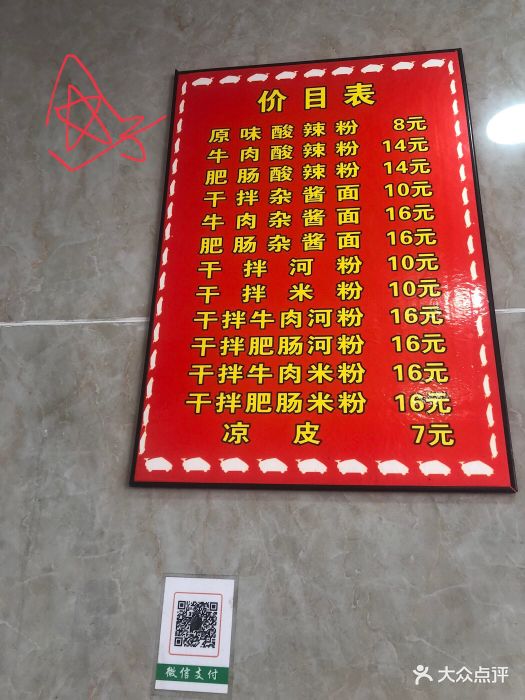 价目表
原味酸辣粉 8元
牛肉酸辣粉 14元
肥肠酸辣粉 14元
干拌杂酱面 10元
牛肉杂酱面 16元
肥肠杂酱面 16元
干拌河粉 10元
干拌米粉 10元
干拌牛肉河粉 16元
干拌肥肠河粉 16元
干拌牛肉米粉 16元
干拌肥肠米粉 16元
凉皮 7元
微信支付
大众点评